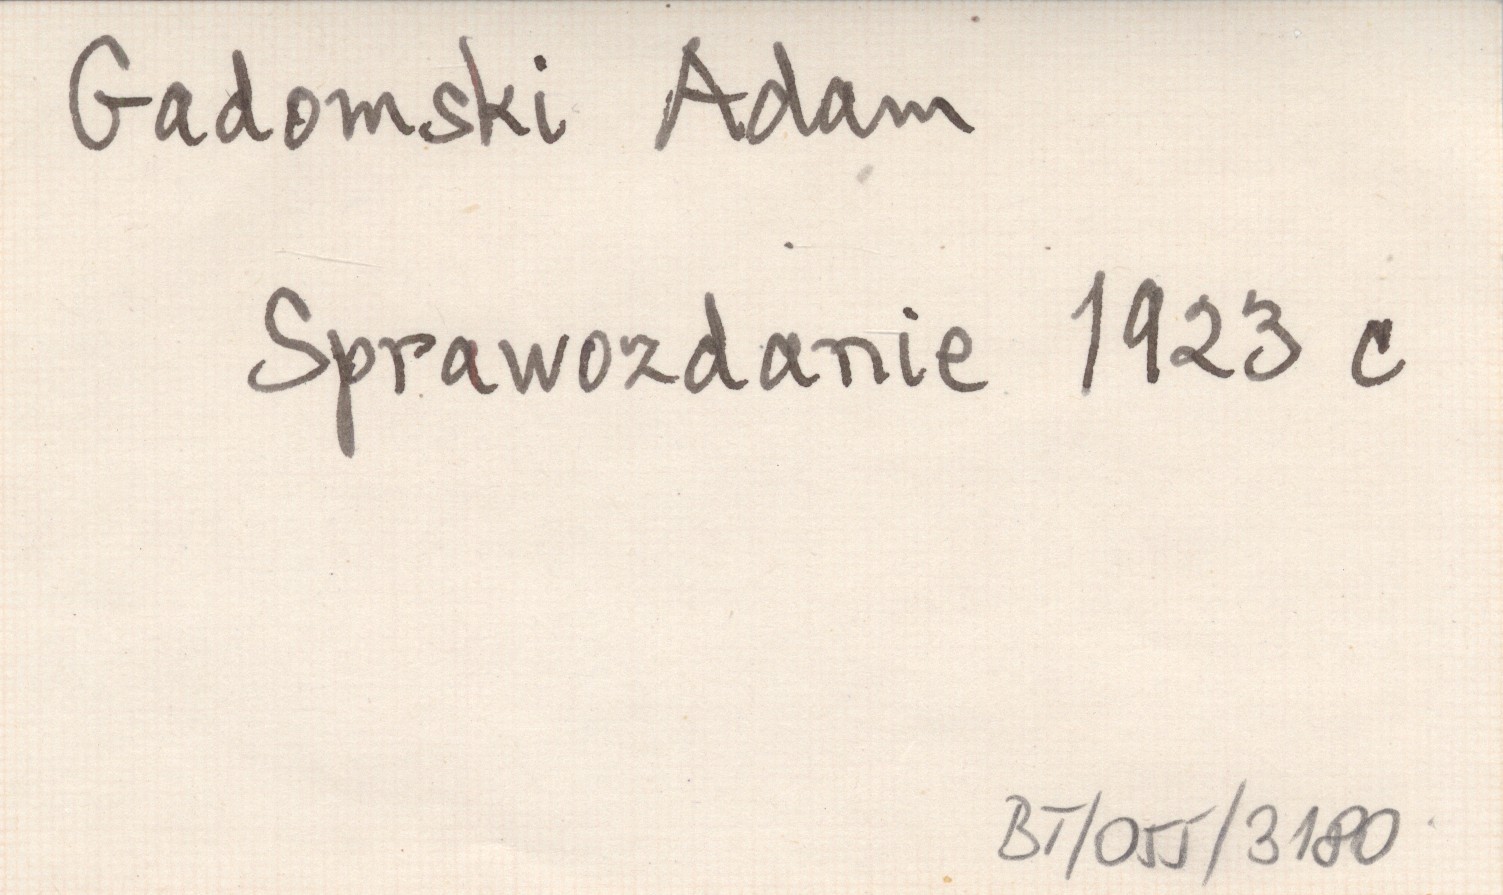 Gadomski Adam
Sprawozdanie 1923 c
BT/055/3180